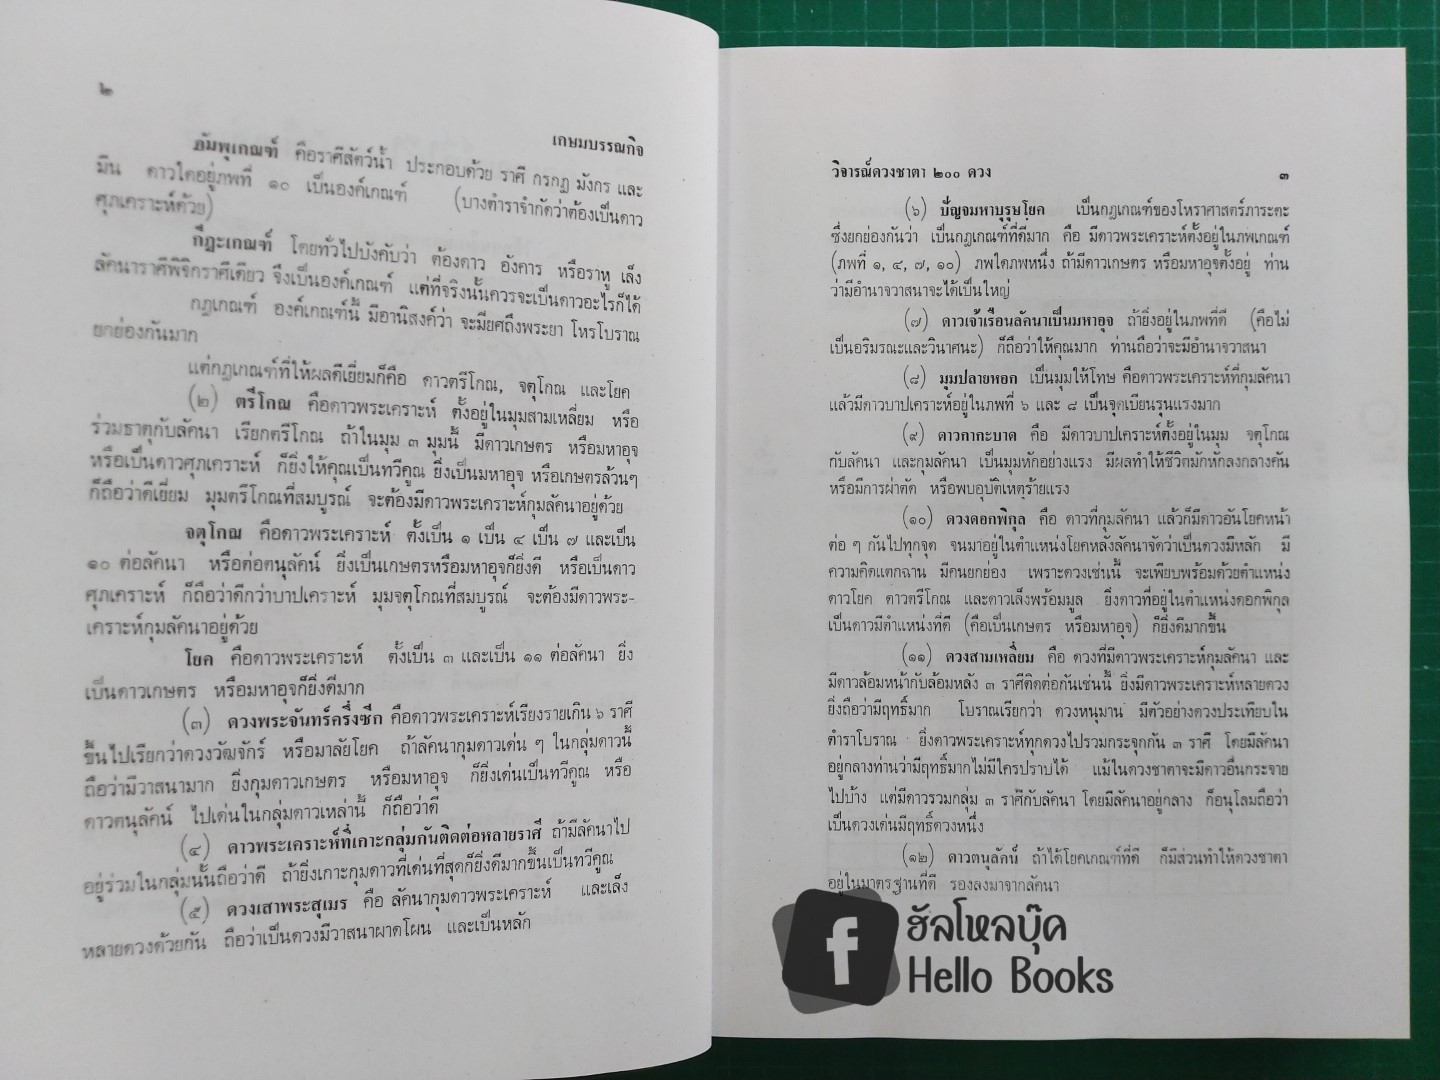 ๒
เกษมบรรณกิจ
อัมพุเกณฑ์ คือราศีสัตว์น้ำ ประกอบด้วย ราศี กรกฎ มังกร และ
มีน ดาวใดอยู่ภพที่ ๑๐ เป็นองค์เกณฑ์ (บางตำราจำกัดว่าต้องเป็นดาว
ศุภเคราะห์ด้วย)
กีฏะเกณฑ์ โดยทั่วไปบังคับว่า ต้องดาว อังคาร หรือราหู เล็ง
ลัคนาราศีพิจิกราศีเดียว จึงเป็นองค์เกณฑ์ แต่ที่จริงนั้นควรจะเป็นดาวอะไรก็ได้
กฎเกณฑ์ องค์เกณฑ์นี้ มีอานิสงค์ว่า จะมียศถึงพระยา โหรโบราณ
ยกย่องกันมาก
แต่กฎเกณฑ์ที่ให้ผลดีเยี่ยมก็คือ ดาวตรีโกณ, จตุโกณ และโยค
(๒) ตรีโกณ คือดาวพระเคราะห์ ตั้งอยู่ในมุมสามเหลี่ยม หรือ
ร่วมธาตุกับลัคนา เรียกตรีโกณ ถ้าในมุม ๓ มุมนี้ มีดาวเกษตร หรือมหาอุจ
หรือเป็นดาวศุภเคราะห์ ก็ยิ่งให้คุณเป็นทวีคูณ ยิ่งเป็นมหาอุจ หรือเกษตรล้วนๆ
ก็ถือว่าดีเยี่ยม มุมตรีโกณที่สมบูรณ์ จะต้องมีดาวพระเคราะห์กุมลัคนาอยู่ด้วย
จตุโกณ คือดาวพระเคราะห์ ตั้งเป็น ๑ เป็น ๔ เป็น ๗ และเป็น
๑๐ ต่อลัคนา หรือต่อตนุลัคน์ ยิ่งเป็นเกษตรหรือมหาอุจก็ยิ่งดี หรือเป็นดาว
ศุภเคราะห์ ก็ถือว่าดีกว่าบาปเคราะห์ มุมจตุโกณที่สมบูรณ์ จะต้องมีดาวพระ-
เคราะห์กุมลัคนาอยู่ด้วย
โยค คือดาวพระเคราะห์ ตั้งเป็น ๓ และเป็น ๑๑ ต่อลัคนา ยิ่ง
เป็นดาวเกษตร หรือมหาอุจก็ยิ่งดีมาก
(๓) ดวงพระจันทร์ครึ่งซีก คือดาวพระเคราะห์เรียงรายเกิน ๖ ราศี
ขึ้นไปเรียกว่าดวงวัฒจักร์ หรือมาลัยโยค ถ้าลัคนากุมดาวเด่น ๆ ในกลุ่มดาวนี้
ถือว่ามีวาสนามาก ยิ่งกุมดาวเกษตร หรือมหาอุจ ก็ยิ่งเด่นเป็นทวีคูณ หรือ
ดาวตนุลัคน์ ไปเด่นในกลุ่มดาวเหล่านี้ ก็ถือว่าดี
(๔) ดาวพระเคราะห์ที่เกาะกลุ่มกันติดต่อหลายราศี ถ้ามีลัคนาไป
อยู่ร่วมในกลุ่มนั้นถือว่าดี ถ้ายิ่งเกาะกุมดาวที่เด่นที่สุดก็ยิ่งดีมากขึ้นเป็นทวีคูณ
(๕) ดวงเสาพระสุเมรุ คือ ลัคนากุมดาวพระเคราะห์ และเล็ง
หลายดวงด้วยกัน ถือว่าเป็นดวงมีวาสนาผาดโผน และเป็นหลัก
วิจารณ์ดวงชาตา ๒๐๐ ดวง ๓
(๖) ปัญจมหาบุรุษโยค เป็นกฎเกณฑ์ของโหราศาสตร์ภาระตะ
ซึ่งยกย่องกันว่า เป็นกฎเกณฑ์ที่ดีมาก คือ มีดาวพระเคราะห์ตั้งอยู่ในภพเกณฑ์
(ภพที่ ๑, ๔, ๗, ๑๐) ภพใดภพหนึ่ง ถ้ามีดาวเกษตร หรือมหาอุจตั้งอยู่ ท่าน
ว่ามีอำนาจวาสนาจะได้เป็นใหญ่
(๗) ดาวเจ้าเรือนลัคนาเป็นมหาอุจ ถ้ายิ่งอยู่ในภพที่ดี (คือไม่
เป็นอริมรณะและวินาศนะ) ก็ถือว่าให้คุณมาก ท่านถือว่าจะมีอำนาจวาสนา
(๘) มุมปลายหอก เป็นมุมให้โทษ คือดาวพระเคราะห์ที่กุมลัคนา
แล้วมีดาวบาปเคราะห์อยู่ในภพที่ ๖ และ ๘ เป็นจุดเบียนรุนแรงมาก
(๙) ดาวกากะบาด คือ มีดาวบาปเคราะห์ตั้งอยู่ในมุม จตุโกณ
กับลัคนา และกุมลัคนา เป็นมุมหักอย่างแรง มีผลทำให้ชีวิตมักหักลงกลางคัน
หรือมีการผ่าตัด หรือพบอุบัติเหตุร้ายแรง
(๑๐) ดวงดอกพิกุล คือ ดาวที่กุมลัคนา แล้วก็มีดาวอันโยคหน้า
ต่อ ๆ กันไปทุกจุด จนมาอยู่ในตำแหน่งโยคหลังลัคนาจัดว่าเป็นดวงมีหลัก มี
ความคิดแตกฉาน มีคนยกย่อง เพราะดวงเช่นนี้ จะเพียบพร้อมด้วยตำแหน่ง
ดาวโยค ดาวตรีโกณ และดาวเล็งพร้อมมูล ยิ่งดาวที่อยู่ในตำแหน่งดอกพิกุล
เป็นดาวมีตำแหน่งที่ดี (คือเป็นเกษตร หรือมหาอุจ) ก็ยิ่งดีมากขึ้น
(๑๑) ดวงสามเหลี่ยม คือ ดวงที่มีดาวพระเคราะห์กุมลัคนา และ
มีดาวล้อมหน้ากับล้อมหลัง ๓ ราศีติดต่อกันเช่นนี้ ยิ่งมีดาวพระเคราะห์หลายดวง
ยิ่งถือว่ามีฤทธิ์มาก โบราณเรียกว่า ดวงหนุมาน มีตัวอย่างดวงประเทียบใน
ตำราโบราณ ยิ่งดาวพระเคราะห์ทุกดวงไปรวมกระจุกกัน ๓ ราศี โดยมีลัคนา
อยู่กลางท่านว่ามีฤทธิ์มากไม่มีใครปราบได้ แม้ในดวงชาตาจะมีดาวอื่นกระจาย
ไปบ้าง แต่มีดาวรวมกลุ่ม ๓ ราศีกับลัคนา โดยมีลัคนาอยู่กลาง ก็อนุโลมถือว่า
เป็นดวงเด่นมีฤทธิ์ดวงหนึ่ง
(๑๒) ดาวตนุลัคน์ ถ้าได้โยคเกณฑ์ที่ดี ก็มีส่วนทำให้ดวงชาตา
อยู่ในมาตรฐานที่ดี รองลงมาจากลัคนา
f
ฮัลโหลบุ๊ค
Hello Books